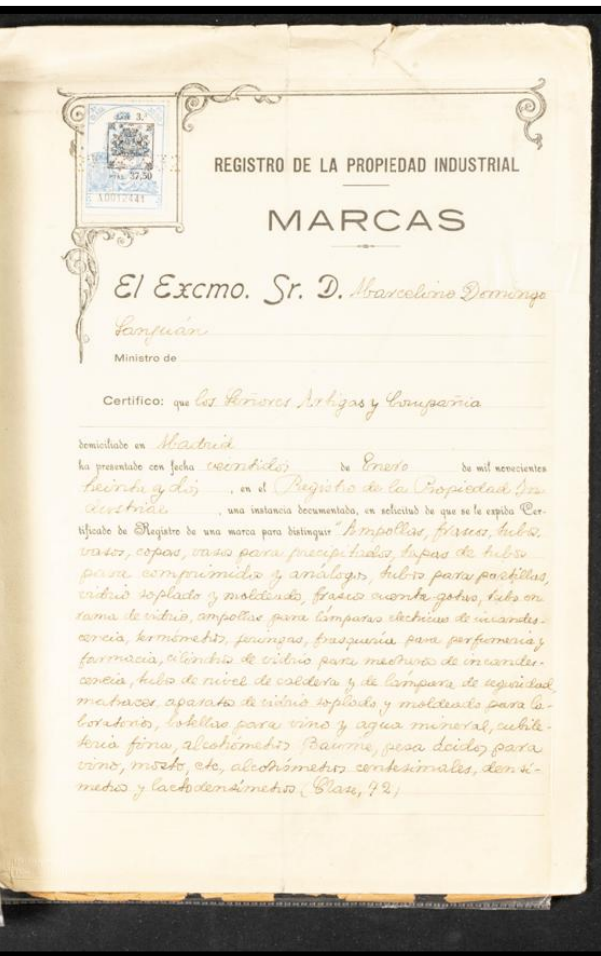 3.ª
37,50
A0012441
REGISTRO DE LA PROPIEDAD INDUSTRIAL
MARCAS
El Excmo. Sr. D. Marcelino Domingo
Sanjuán
Ministro de
Certifico: que los Señores Artigas y Compañia
domiciliado en Madrid
ha presentado con fecha veintidós de Enero de mil novecientos
treinta y dós, en el Registro de la Propiedad In-
dustrial, una instancia documentada, en solicitud de que se le expida Cer-
tificado de Registro de una marca para distinguir "Ampollas, frascos, tubos,
vasos, copas, vasos para precipitados, tapas de tubos
para comprimidos y análogos, tubos para pastillas,
vidrio soplado y moldeado, frascos cuenta-gotas, tubo en
rama de vidrio, ampollas para lámparas electricas de incandes-
cencia, termómetros, jeringas, frasqueria para perfumeria y
farmacia, cilindros de vidrio para mecheros de incandes-
cencia, tubos de nivel de caldera y de lámpara de seguridad,
matraces, aparatos de vidrio soplado y moldeado para la-
boratorios, botellas para vino y agua mineral, cubile-
teria fina, alcohómetros Baume, pesa ácidos para
vino, mosto, etc, alcohómetros centesimales, densí-
metros y lactodensímetros (Clase, 92)